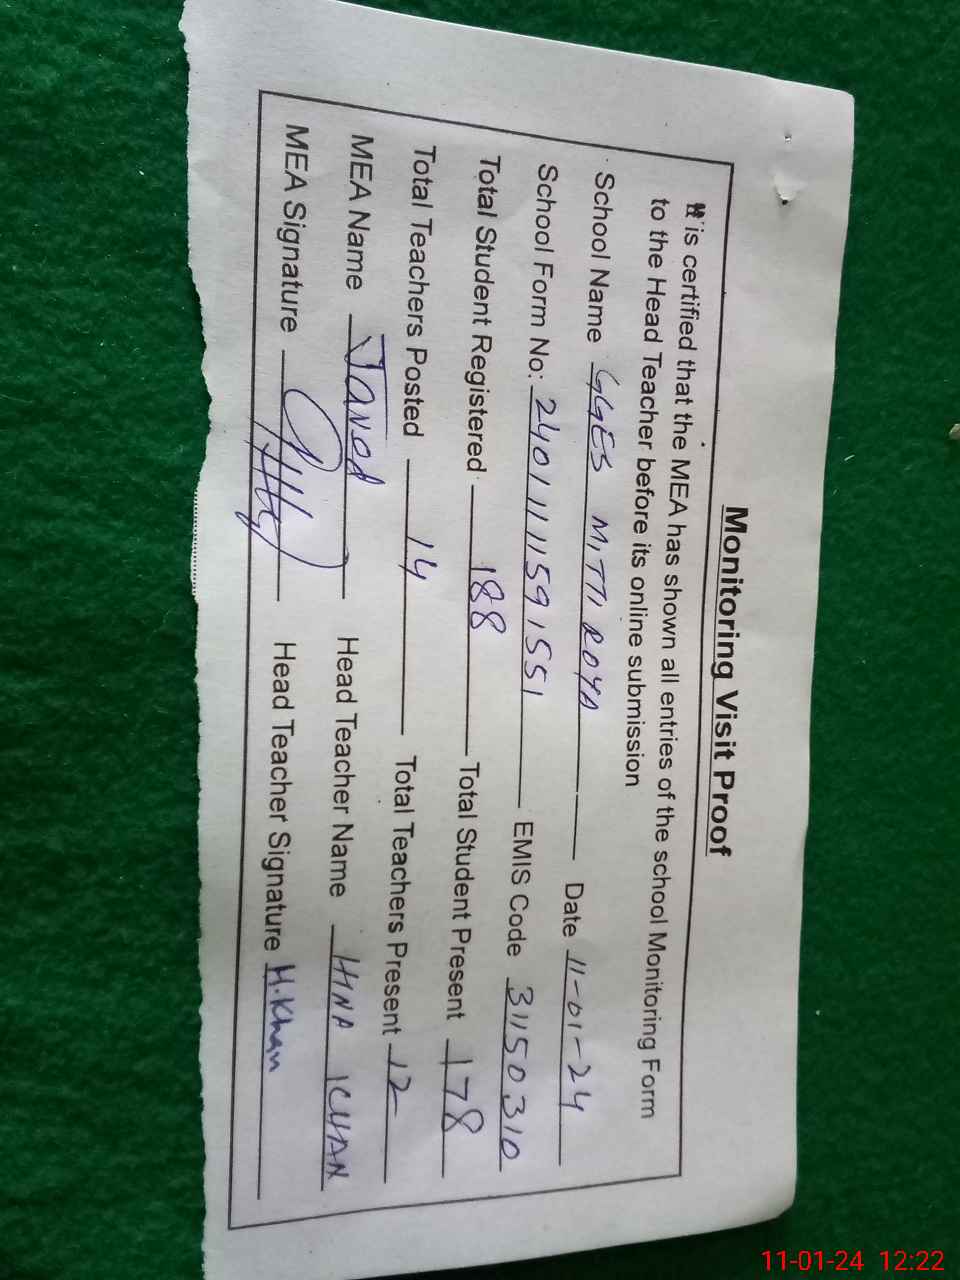 Monitoring Visit Proof
It is certified that the MEA has shown all entries of the school Monitoring Form
to the Head Teacher before its online submission
School Name GGES MITTI ROYA Date 11-01-24
School Form No: 24011111591551 EMIS Code 31150310
Total Student Registered 188 Total Student Present 178
Total Teachers Posted 14 Total Teachers Present 12
MEA Name Javed Head Teacher Name HINA KHAN
MEA Signature Head Teacher Signature H.Khan
11-01-24 12:22